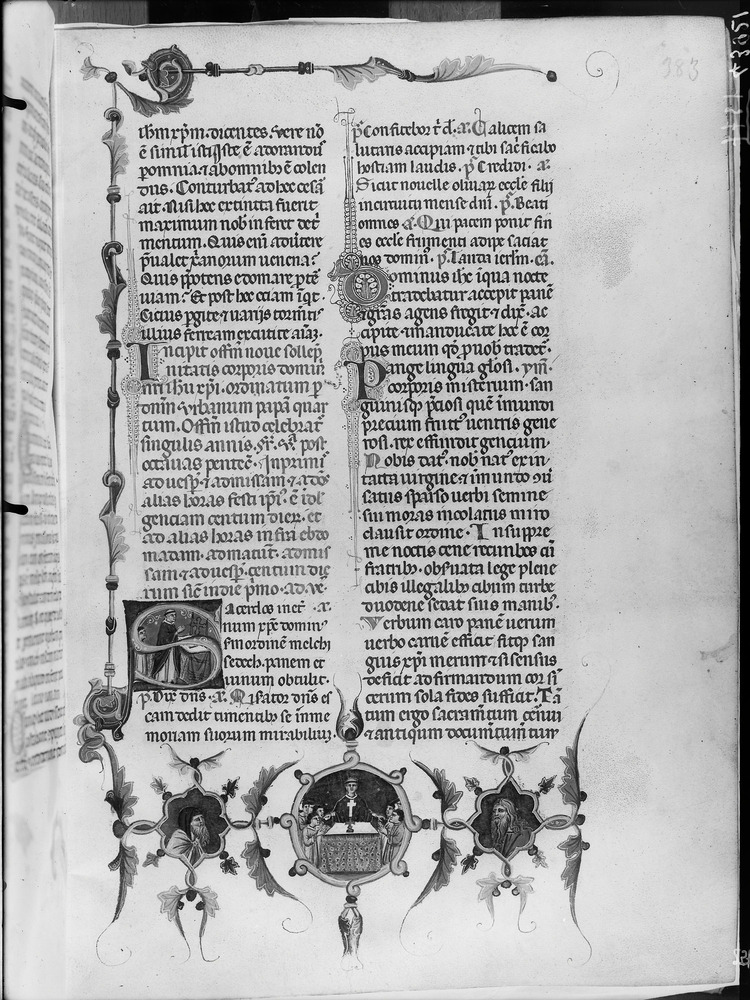 ihm xpm. dicentes. vere nō
ē simil' isti. Iste ē adorandus
p omnia. ⁊ ab omnibȝ ē colen
dus. Conturbat' ad hec cesar
ait. Nisi hec extincta fuerit
maximum nob inferet det'
mentum. Quis eni adutere
pualet
Quis
uiam? Et post hec etiam iqt.
Cicius pgite ⁊ uarijs tormtis
illius feriteam excutite aiaz.
Incipit offm noue sollep
nitatis corporis domin
nri ihu xpi. ordinatum p
domm urbanum papā quar
tum. Offm istud celebrat'
singulis annis. post
octauas pentec. In primis
ad uesp ⁊ ad missam ⁊ ad oēs
alias horas festi ipi'. ē idl
genciam centum dier. et
ad alias horas infra ebdo
madam. ad matut. ad mis
sam. ⁊ ad uesp. centum die
rum sic in die pmo. ad ve.
Sacerdos inet'. a.
num xpe domin'
sm ordinē melchi
sedech. panem et
uinum obtulit.
p. Dix' dns. a. Misator dns es
cam dedit timentibȝ se in me
moriam suorum mirabiliuz.
p. Confitebor t' d. a. Calicem sa
lutaris accipiam ⁊ tibi sacficabo
hostiam laudis. p. Credidi. a.
Sicut nouelle oliuaȝ eccle filij
in circuitu mense dni. p. Beati
omnes a. Qui pacem ponit fin
es eccle frumenti adipe saciat
nos domin'. p. Lauda ierlm. ca.
Dominus ihc i qua nocte
tradebatur accepit panē
⁊ grās agens fregit ⁊ dix'. ac
cipite ⁊ manducate hoc ē cor
pus meum qd p uob tradet'.
Pange lingua glosi. ym.
corporis misterium. san
guinisqȝ pciosi quē i mundi
precium fruct' uentris gene
rosi. rex effundit gencium.
Nobis dat'. nob nat' ex in
tacta uirgine ⁊ i mundo 9ui
satus sparso uerbi semine
sui moras incolatus miro
clausit ordine. In supre
me noctis cene recumbes cū
fratribȝ. obsuata lege plene
cibis i legalibȝ cibum turbe
duodene se dat suis manibȝ.
Verbum caro panē uerum
uerbo carnē efficit fitqȝ san
guis xpi merum ⁊ si sensus
deficit ad firmandum cor si
cerum sola fides sufficit. Tā
tum ergo sacramtum cenui
⁊ antiqum documtum tum
383